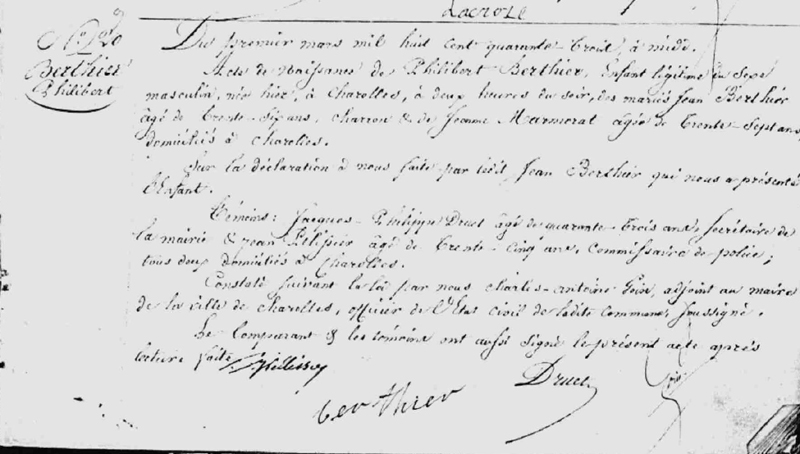 Lacroze
N.º 20
Berthier
Philibert
Du premier mars mil huit cent quarante trois, à midi.
Acte de Naissance de Philibert Berthier, Enfant légitime du sexe
masculin, née hier, à Charolles, à deux heures du soir, des mariés Jean Berthier
âgé de trente-six ans, charron & de Jeanne Marmorat âgée de trente-sept ans,
domiciliés à Charolles.
Sur la déclaration à nous faite par ledit Jean Berthier qui nous a présenté
l'enfant.
Témoins: Jacques-Philippe Druet âgé de quarante-trois ans, secrétaire de
la mairie & Jean Pelissier âgé de trente-cinq ans, commissaire de police;
tous deux domiciliés à Charolles.
Constaté suivant la loi par nous Charles-Antoine adjoint au maire
de la ville de Charolles, officier de l'Etat civil de ladite commune, soussigné.
Le Comparant & les témoins ont aussi signé le présent acte après
lecture faite. Pellissier
berthier Druet